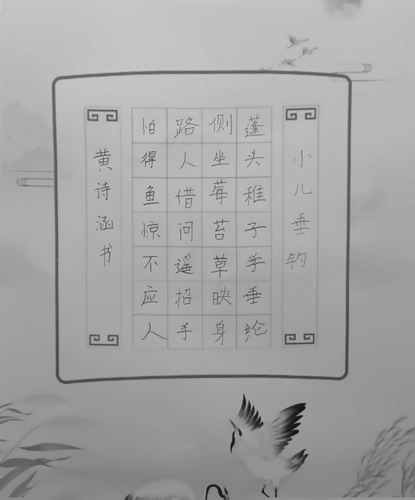 小儿垂钓
蓬头稚子学垂纶
侧坐莓苔草映身
路人借问遥招手
怕得鱼惊不应人
黄诗涵书